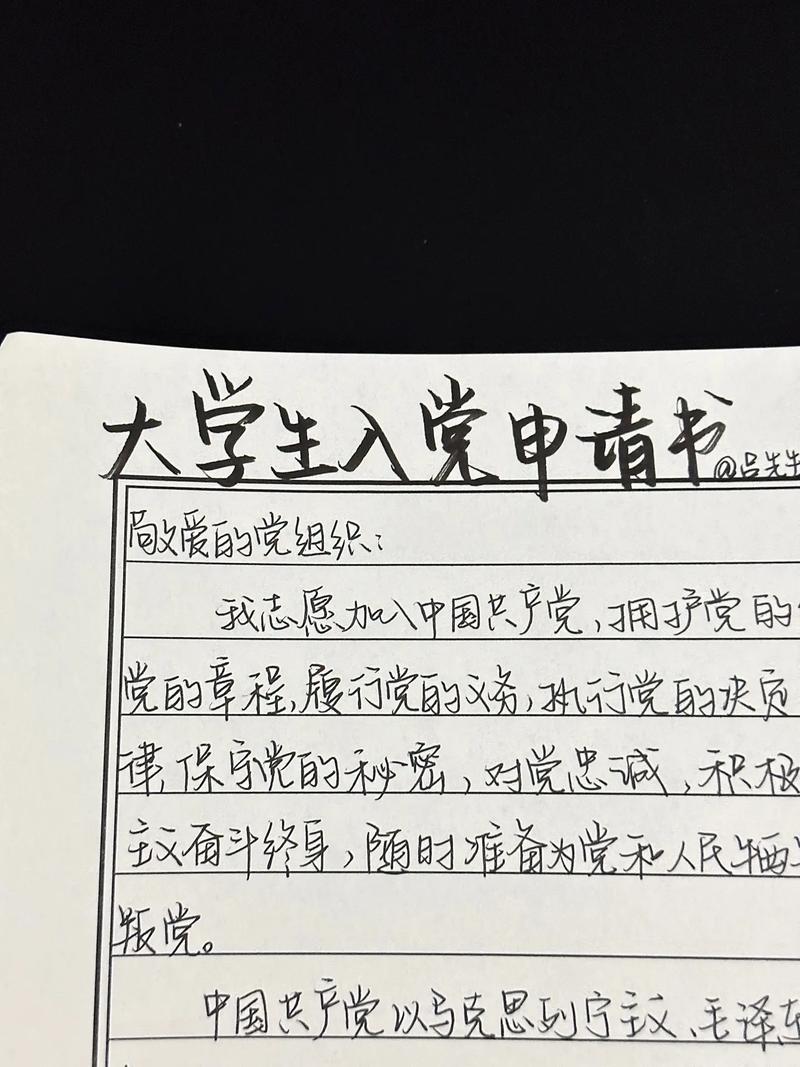 大学生入党申请书
@吕先生
敬爱的党组织：
我志愿加入中国共产党，拥护党的
党的章程，履行党的义务，执行党的决定
律，保守党的秘密，对党忠诚，积极
主义奋斗终身，随时准备为党和人民牺牲
叛党。
中国共产党以马克思列宁主义、毛泽东